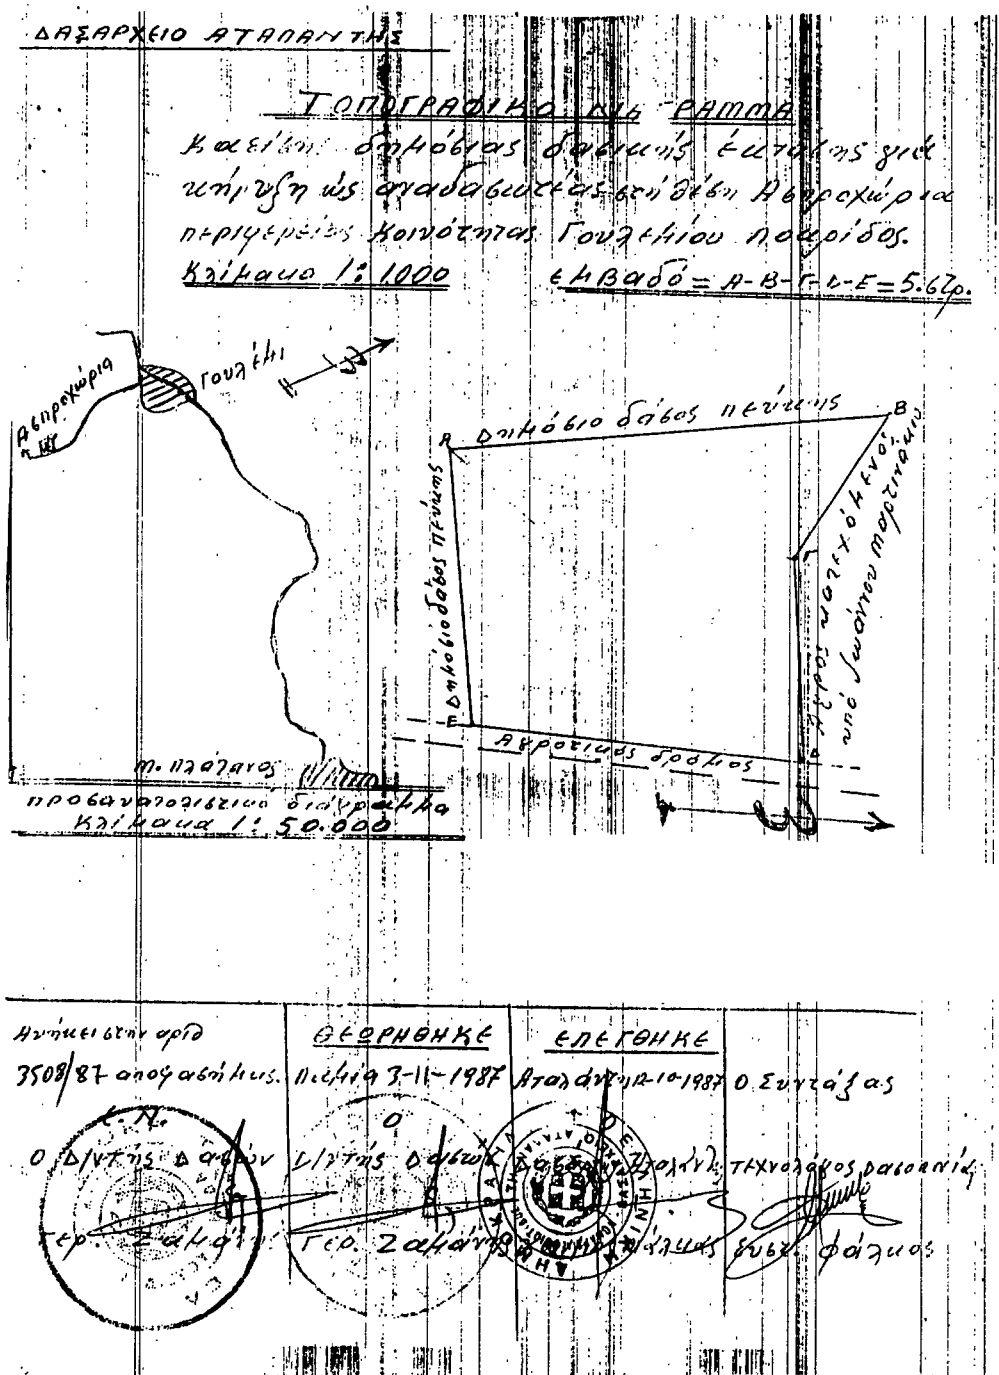 ΔΑΣΑΡΧΕΙΟ ΑΤΑΛΑΝΤΗΣ
ΤΟΠΟΓΡΑΦΙΚΟ ΡΑΜΜΑ
δημόσιας δασικής έκτασης γιά
κήρυξη ώς αναδασωτέας στή θέση Ασπροχώρια
περιφερείας Κοινότητας Γουλεμίου Λοκρίδος.
Κλίμακα 1:1000
εμβαδό = Α-Β-Γ-Δ-Ε = 5.6 στρ.
Ασπροχώρια
Γουλέμι
Α Δημόσιο δάσος πεύκης Β
Δημόσιο δάσος πεύκης
Γ
Ε
Δ
Αγροτικός δρόμος
πλάτανος
προσανατολιστικό διάγραμμα
Κλίμακα 1:50.000
Ανήκει στην αριθ
3508/87 απόφασή μας.
Ο Δ/ντής Δασών
Γερ. Ζαμάνης
ΘΕΩΡΗΘΗΚΕ
Λαμία 3-11-1987
Ο
Δ/ντής Δασών
Γερ. Ζαμάνης
ΕΛΕΓΘΗΚΕ
Αταλάντη -10-1987
Ο Συντάξας
Τεχνολόγος Δασοπονίας
Ευστ. Φάλκος